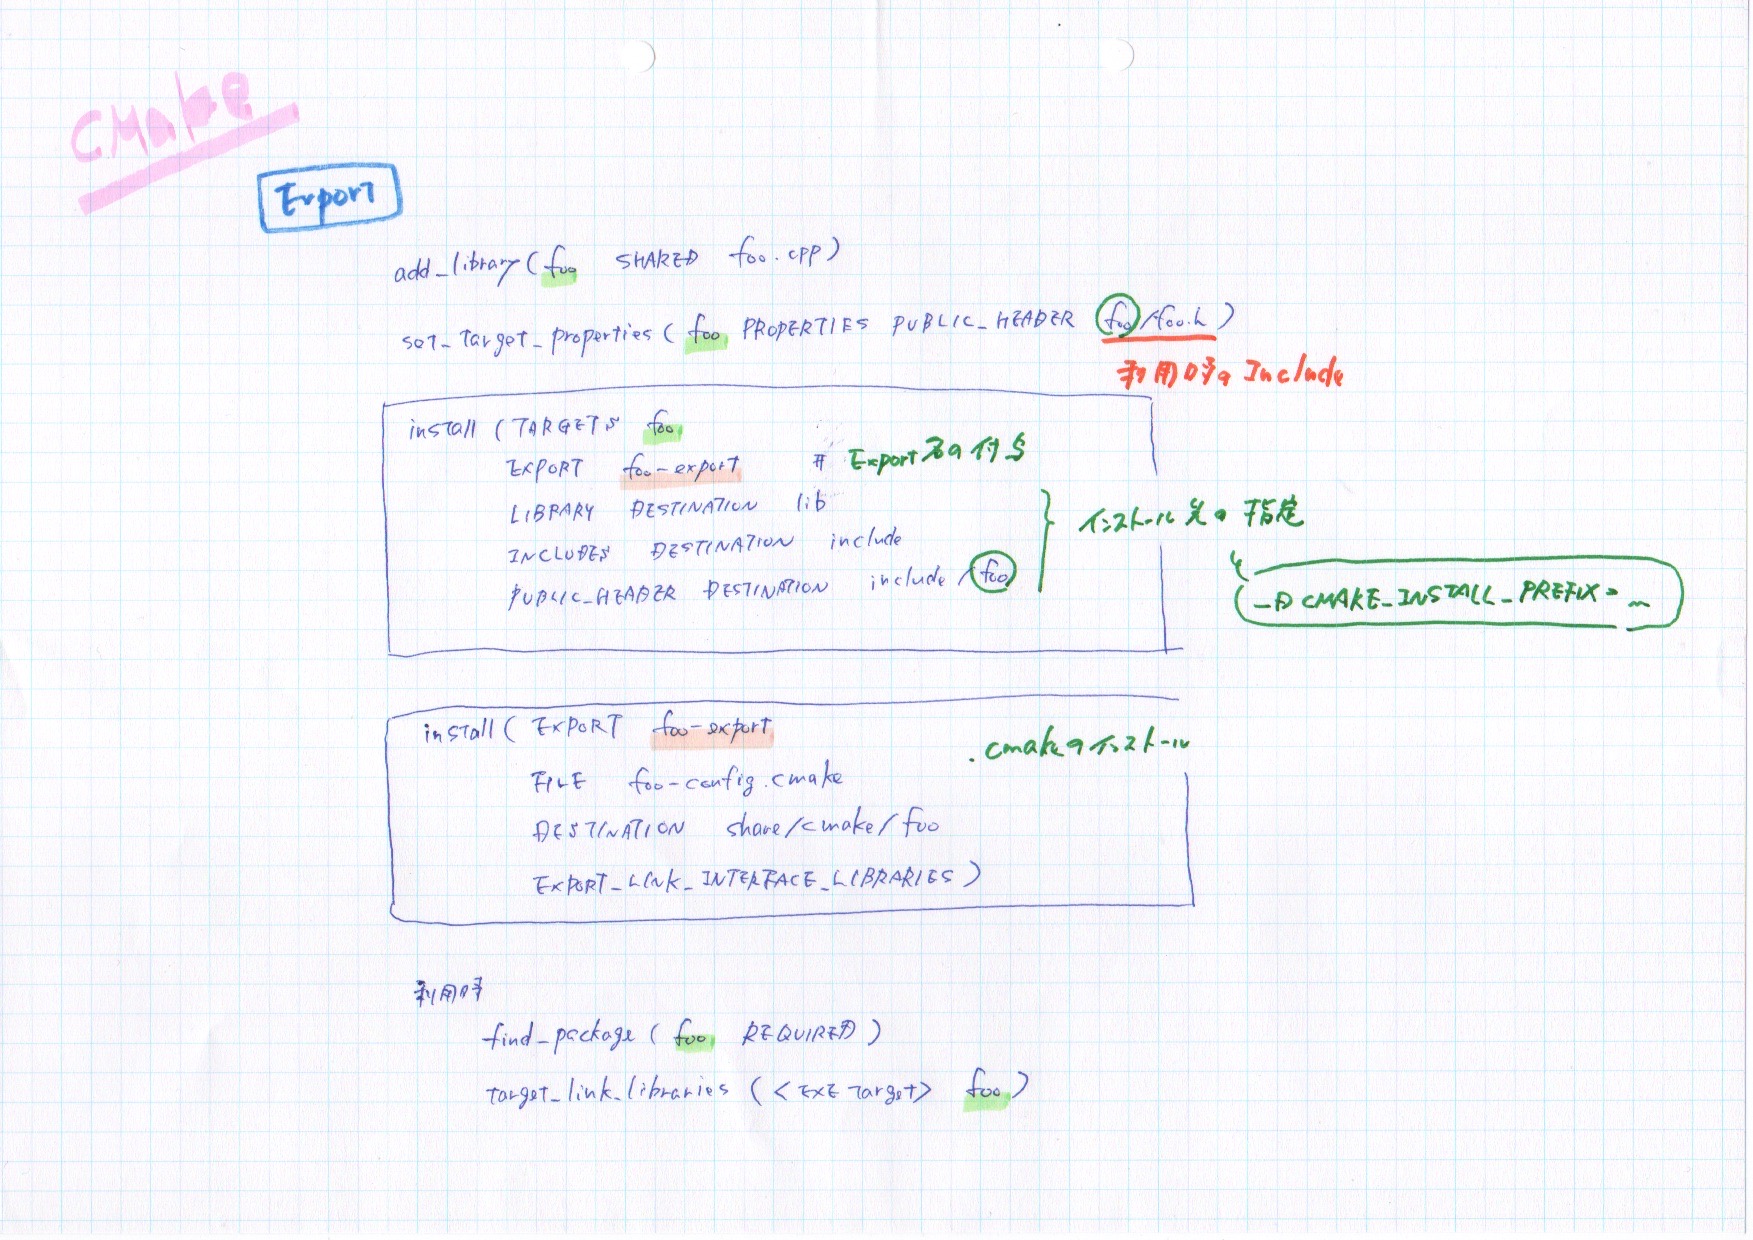 CMake
Export
add_library(foo SHARED foo.cpp)
set_target_properties(foo PROPERTIES PUBLIC_HEADER foo/foo.h)
利用時の Include
install (TARGETS foo
EXPORT foo-export # Export名の付与
LIBRARY DESTINATION lib
INCLUDES DESTINATION include
PUBLIC_HEADER DESTINATION include/foo
インストール先の指定
-D CMAKE_INSTALL_PREFIX=…
install( EXPORT foo-export
.cmakeのインストール
FILE foo-config.cmake
DESTINATION share/cmake/foo
EXPORT_LINK_INTERFACE_LIBRARIES)
利用時
find_package(foo REQUIRED)
target_link_libraries (<EXE Target> foo)